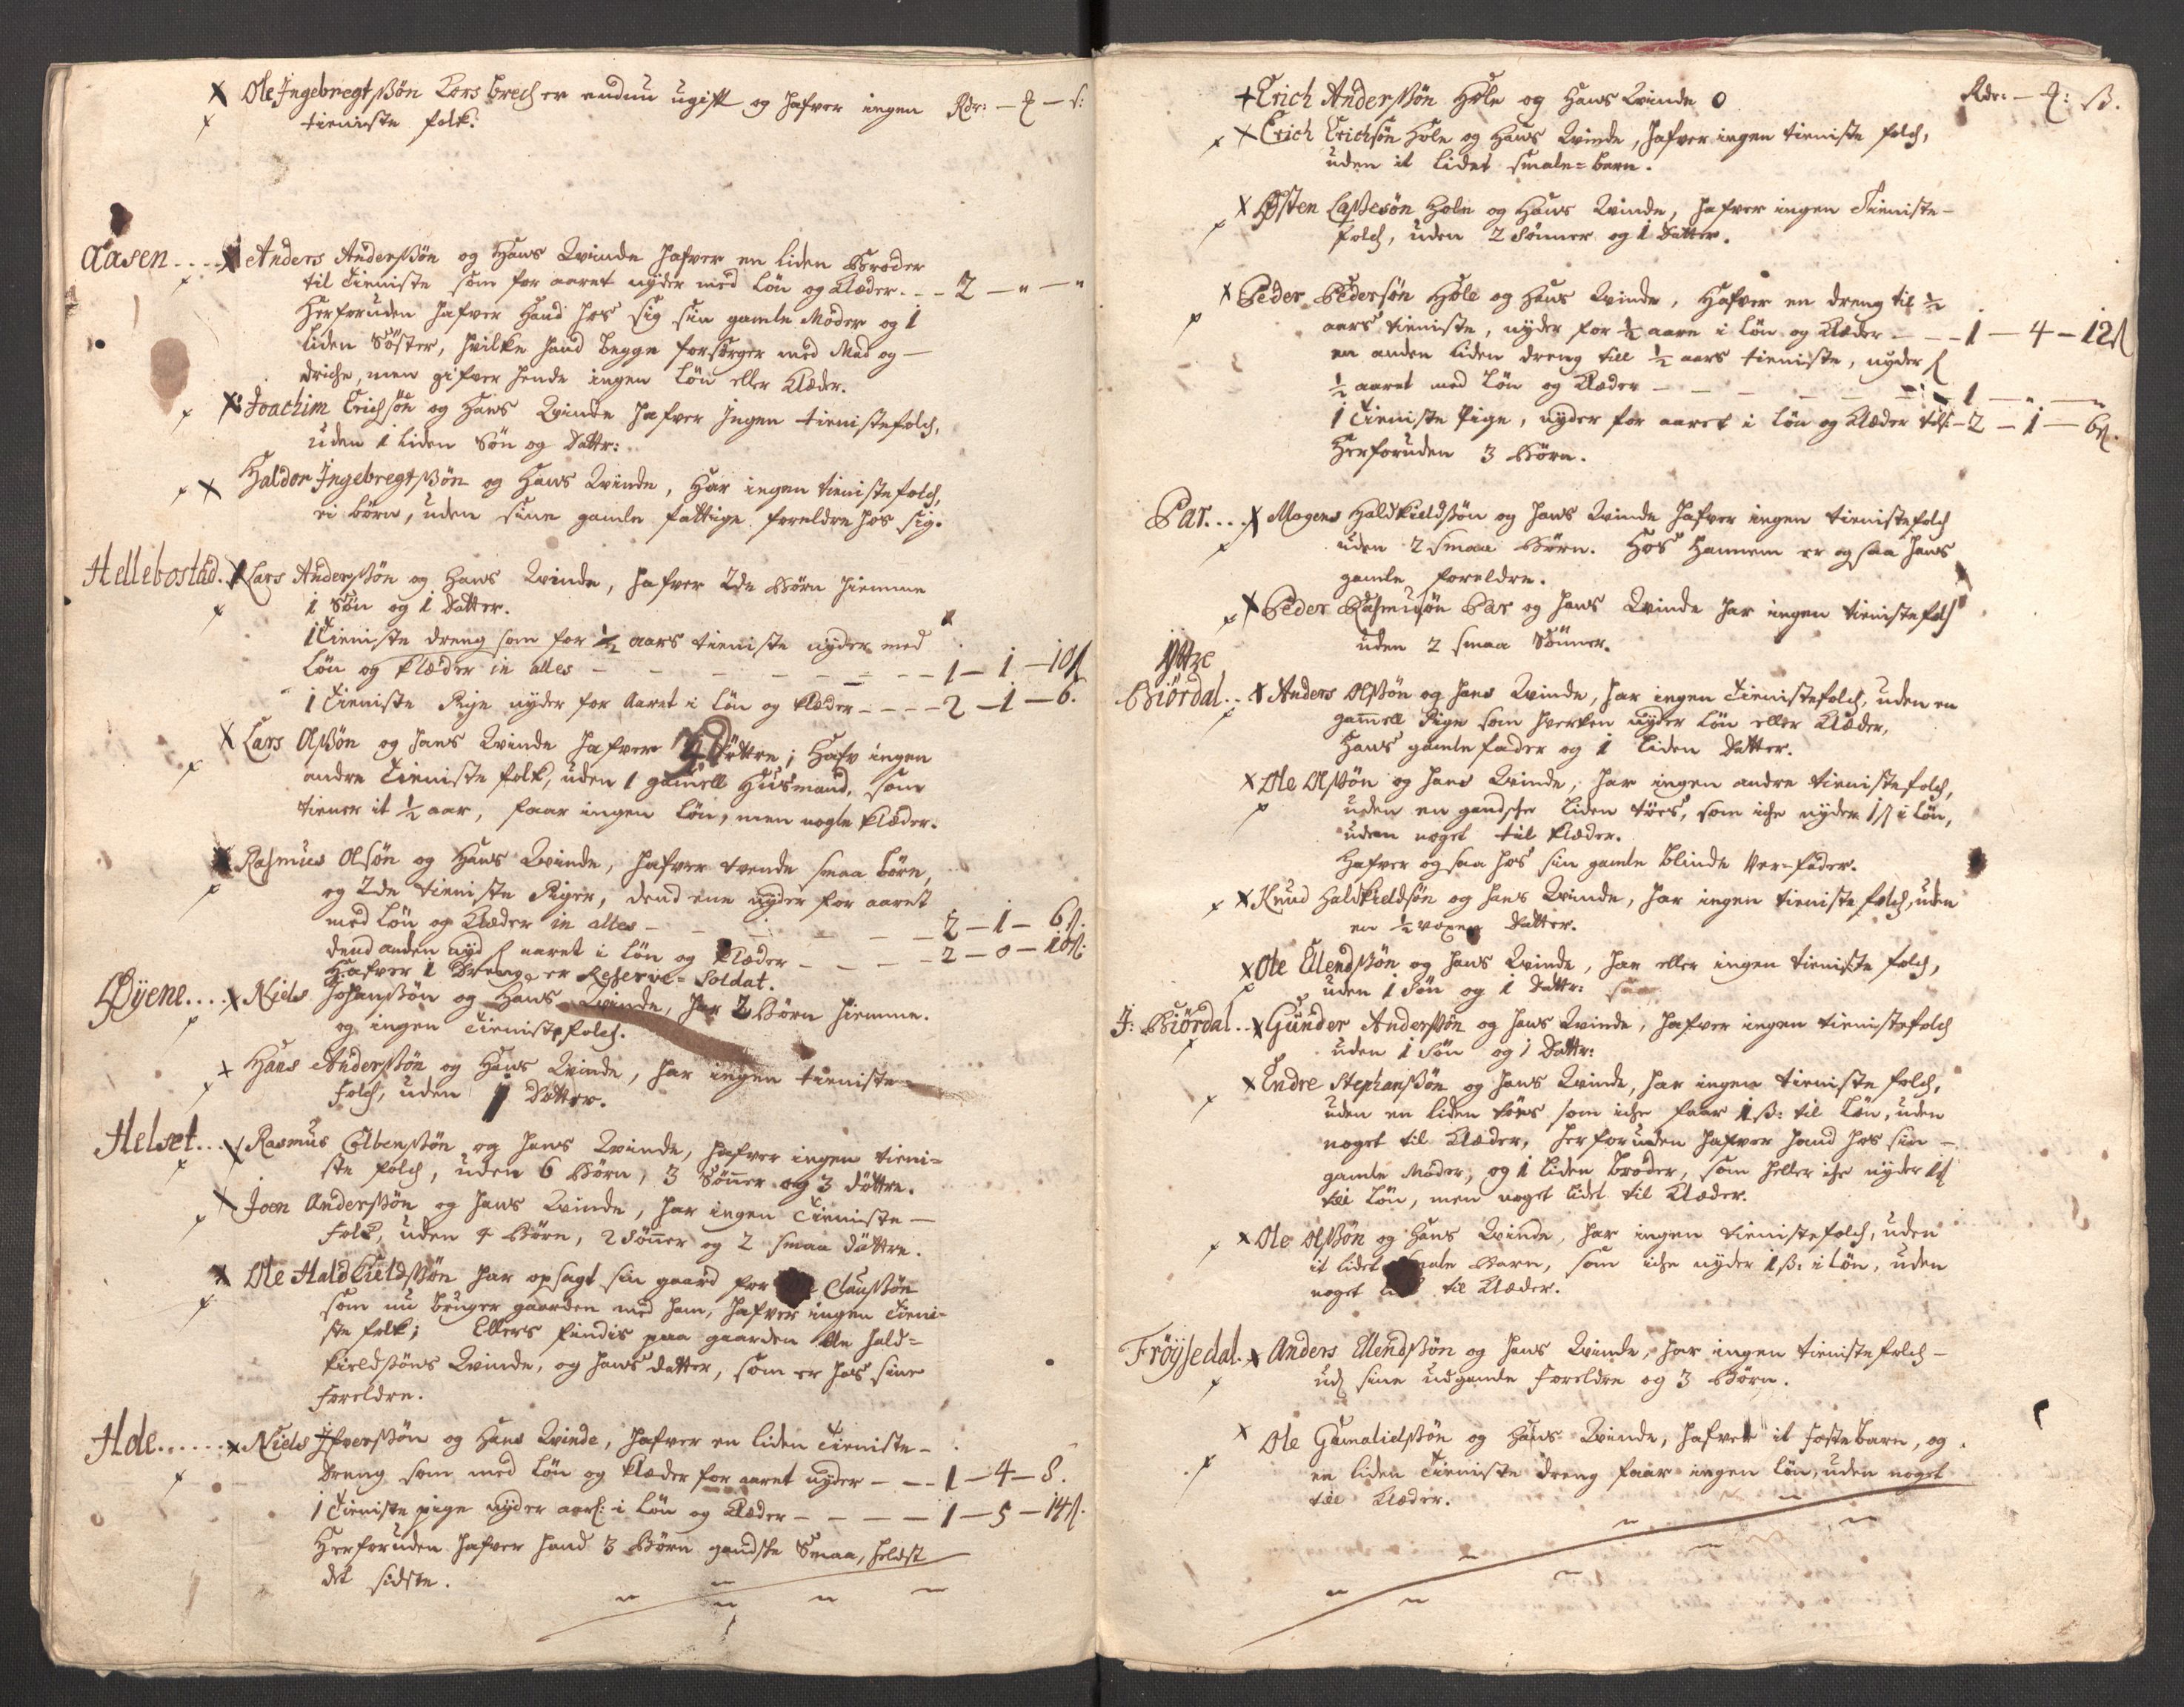 Ole Ingebregtssøn Korsbrech er endnu ugift og hafver ingen Rdr: — ß:
tieniste folk.
Aasen.... Anders Anderssøn og Hans Qvinde hafver en liden Broder
til Tieniste som for aaret nyder med Løn og Klæder. — 2 — " — "
Herforuden hafver Hand hos sig sin gamle Moder og 1
liden Søster, hvilke hand begge forsørger med Mad og
driche, men gifver hende ingen Løn eller Klæder.
Joachim Erichsøn og Hans Qvinde hafver Ingen tienistefolch,
uden 1 liden Søn og Dattr:
Haldor Ingebregtssøn og Hans Qvinde, Har ingen tienistefolch,
ei børn, uden sine gamle fattige foreldre hos sig.
Hellebostad. Lars Anderssøn og Hans Qvinde, hafver 2de Børn hiemme
1 Søn og 1 Datter.
1 Tieniste dreng som for ½ aars tieniste nyder med
Løn og Klæder in alles — 1 — 1 — 10ß
1 Tieniste Pige nyder for Aaret i Løn og Klæder — 2 — 1 — 6.
Lars Olssøn og hans Qvinde hafver Døttre; Hafv ingen
andre Tieniste folk, uden 1 gamell Husmand, som
tiener it ½ aar, faar ingen Løn, men nogle Klæder.
Rasmus Olsøn og Hans Qvinde, hafver tvende smaa børn,
og 2de tieniste Piger, dend ene nyder for aaret
med Løn og Klæder in alles — 2 — 1 — 6ß.
dend anden nyd aaret i Løn og Klæder — 2 — 0 — 10ß:
Hafver 1 Dreng er Reserve-Soldat.
Øyene.... Niels Johanssøn og Hans Qvinde, har 2 Børn hiemme.
og ingen Tienistefolch.
Hans Anderssøn og Hans Qvinde, har ingen tieniste-
folch, uden 1 Datter.
Helset... Rasmus Colbenssøn og hans Qvinde, hafver ingen tieni-
ste folch, uden 6 Børn, 3 Sønner og 3 døttre.
Joen Anderssøn og hans Qvinde, har ingen Tieniste-
folk, uden 4 Børn, 2 Sønner og 2 smaa døttre.
Ole Haldkieldssøn har opsagt sin gaard for Claussøn
som nu bruger gaarden med ham, hafver ingen Tieni-
ste folk; Ellers findis paa gaarden Ole Hald-
kieldssøns Qvinde, og hans datter, som er hos sine
foreldre.
Hole...... Niels Ifverssøn og Hans Qvinde, hafver en liden Tieniste-
dreng som med Løn og Klæder for aaret nyder — 1 — 4 — 8.
1 Tieniste pige nyder aarl: i Løn og Klæder — 1 — 5 — 14ß.
Herforuden hafver hand 3 Børn gandske Smaa, heldst
det sidste.
Erich Anderssøn Hole og Hans Qvinde 0 Rdr: — ß.
Erich Erichsøn Hole og Hans Qvinde, hafver ingen tieniste folch,
uden it lidet smale-barn.
Østen Lassesøn Hole og Hans Qvinde, hafver ingen Tieniste-
folch, uden 2 Sønner og 1 Datter.
Peder Pedersøn Hole og Hans Qvinde, Hafver en dreng til ½
aars tieniste, nyder for ½ aare i Løn og Klæder — 1 — 4 — 12ß
en anden liden dreng till ½ aars tieniste, nyder
½ aaret med Løn og Klæder — 1 — " — "
1 Tieniste Pige, nyder for aaret i Løn og Klæder — 2 — 1 — 6ß.
Herforuden 3 Børn.
Par.... Mogens Haldkieldssøn og hans Qvinde hafver ingen tienistefolch
uden 2 smaa Børn. Hos Hannem er og saa hans
gamle foreldre.
Peder Rasmusøn Par og hans Qvinde har ingen tienistefolch
uden 2 smaa Sønner.
Yttre
Biørdal.. Anders Olssøn og hans Qvinde, har ingen Tienistefolch, uden en
gamell Pige som hverken nyder Løn eller Klæder,
Hans gamle fader og 1 liden Datter.
Ole Olssøn og hans Qvinde, har ingen andre tienistefolch,
uden en gandske liden tøes, som iche nyder 1ß i Løn,
uden noget til Klæder.
Hafver og saa hos sin gamle blinde Ver-fader.
Knud Haldkieldsøn og hans Qvinde, har ingen tieniste folch, uden
en ½ voxen Datter.
Ole Ellendssøn og hans Qvinde, har eller ingen tieniste folch,
uden 1 Søn og 1 Dattr:
I: Biørdal.. Gunder Anderssøn og hans Qvinde, hafver ingen tienistefolch
uden 1 Søn og 1 Dattr:
Endre Stephanssøn og hans Qvinde, har ingen tieniste folch,
uden en liden tøes som iche faar 1 ß: til Løn, uden
noget til Klæder, herforuden hafver hand hos sin
gamle Moder, og 1 liden broder, som heller iche nyder 1ß
till Løn, men noget lidet til Klæder.
Ole Olssøn og Hans Qvinde, har ingen tienistefolch, uden
it lidet Smale Barn, som iche nyder 1 ß: i Løn, uden
noget til Klæder.
Frøysedal. Anders Ellendssøn og hans Qvinde, har ingen tienistefolch
ud sine udgamle foreldre og 3 Børn.
Ole Gamalielssøn og Hans Qvinde, hafver it fostebarn, og
en liden Tieniste dreng faar ingen Løn, uden noget
till Klæder.